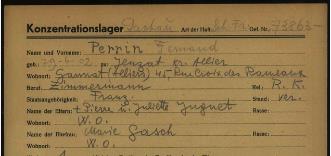 Konzentrationslager Dachau Art der Haft: Sch. Fr. Gef. Nr.: 73863
Name und Vorname: Perrin Fernand
geb.: 29.6.02 zu: Jenzat Kr. Allier
Wohnort: Gannat (Allier) 45 Rue Croix des Rameaux
Beruf: Zimmermann Rel.: R. K.
Staatsangehörigkeit: Franz. Stand: ver.
Name der Eltern: Pierre u. Juliette Rasse:
Wohnort: W. O.
Name der Ehefrau: Marie Gasch Rasse:
Wohnort: W. O.